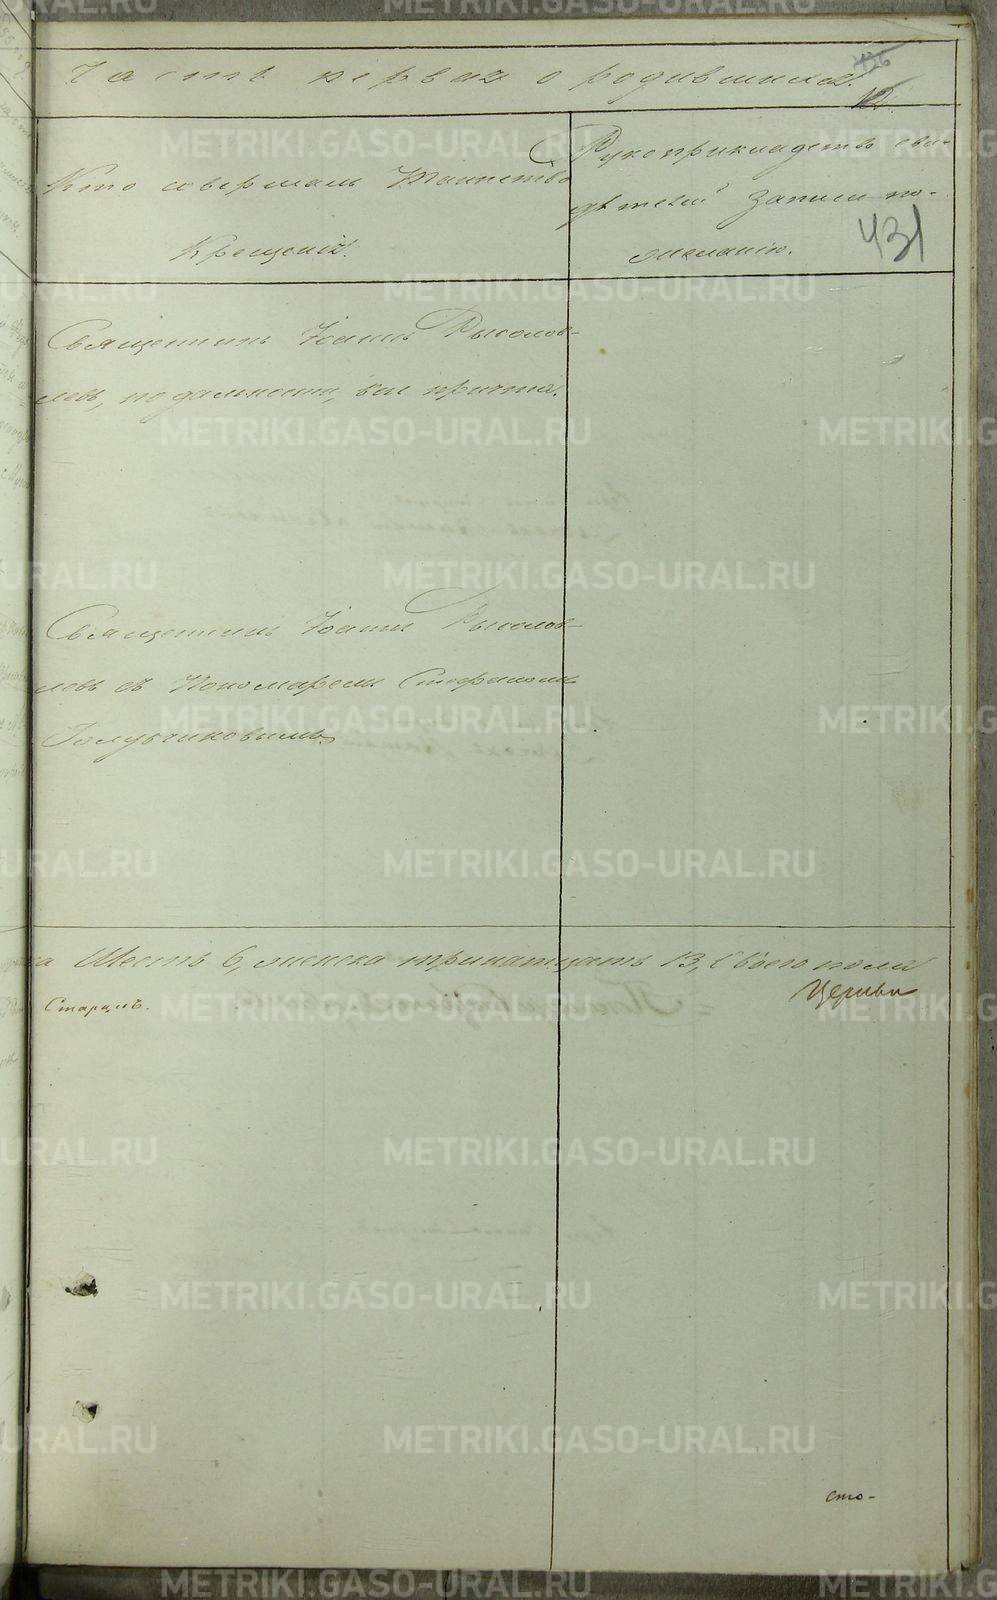 426
Часть первая о родившихся.
12.
Кто совершалъ Таинство
Крещенія.
Рукоприкладство сви-
дѣтелей записи по
желанію.
431
Священникъ Іоаннъ Рыболов-
левъ, по дальности, безъ причта.
Священникъ Іоаннъ Рыболов-
левъ съ Пономаремъ Стефаномъ
Голубчиковымъ.
ка Шесть 6, женска тринатцать 13, Обоего пола
Старцевъ.
Церкви
сто-
METRIKI.GASO-URAL.RU